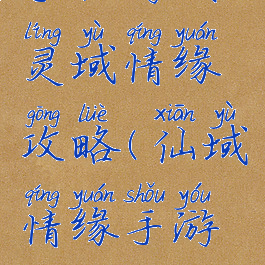 líng yù qíng yuán
灵域情缘
gōng lüè xiān yù
攻略(仙域
qíng yuán shǒu yóu
情缘手游